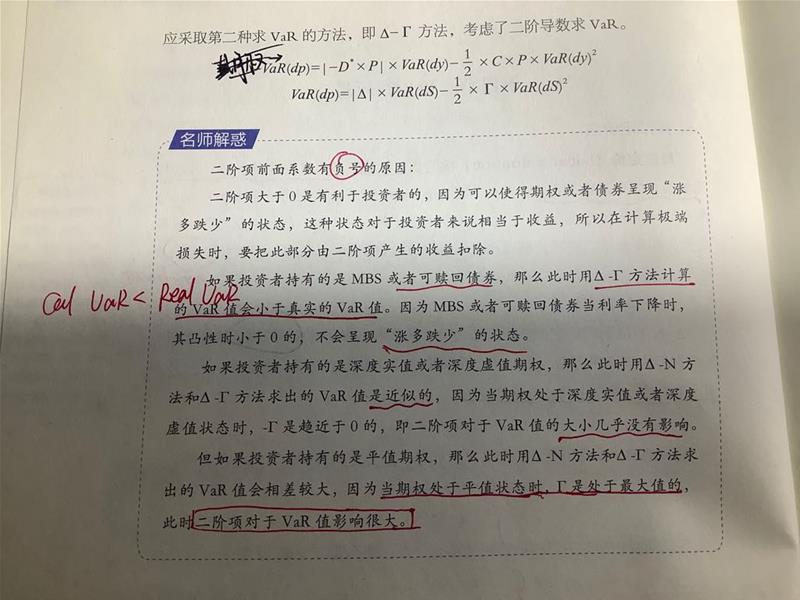 应采取第二种求 VaR 的方法，即 Δ-Γ 方法，考虑了二阶导数求 VaR。
VaR(dp)=|-D*×P|×VaR(dy)-1/2×C×P×VaR(dy)²
VaR(dp)=|Δ|×VaR(dS)-1/2×Γ×VaR(dS)²
名师解惑
二阶项前面系数有负号的原因：
二阶项大于0是有利于投资者的，因为可以使得期权或者债券呈现“涨
多跌少”的状态，这种状态对于投资者来说相当于收益，所以在计算极端
损失时，要把此部分由二阶项产生的收益扣除。
如果投资者持有的是 MBS 或者可赎回债券，那么此时用Δ-Γ方法计算
Cal VaR < Real VaR
的 VaR 值会小于真实的 VaR 值。因为 MBS 或者可赎回债券当利率下降时，
其凸性时小于0的，不会呈现“涨多跌少”的状态。
如果投资者持有的是深度实值或者深度虚值期权，那么此时用Δ-N 方
法和Δ-Γ方法求出的 VaR 值是近似的，因为当期权处于深度实值或者深度
虚值状态时，-Γ是趋近于0的，即二阶项对于 VaR 值的大小几乎没有影响。
但如果投资者持有的是平值期权，那么此时用Δ-N 方法和Δ-Γ方法求
出的 VaR 值会相差较大，因为当期权处于平值状态时，Γ是处于最大值的，
此时二阶项对于 VaR 值影响很大。